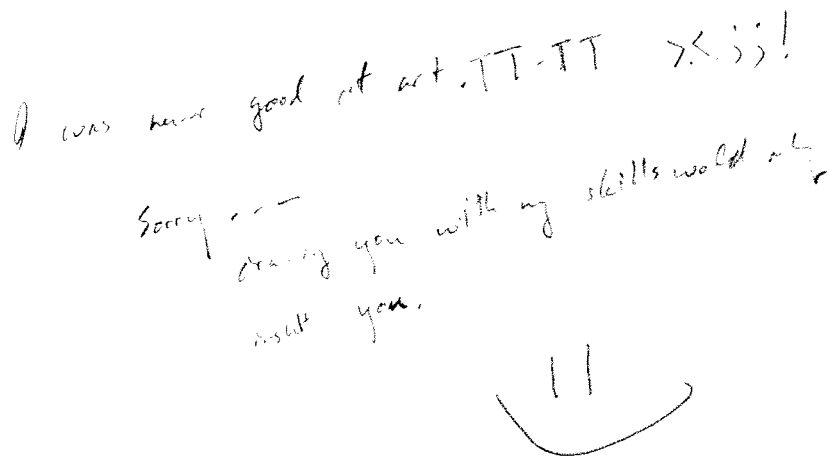 I was never good at art. TT-TT >.< ;;!
Sorry...
drawing you with my skills would only
insult you.